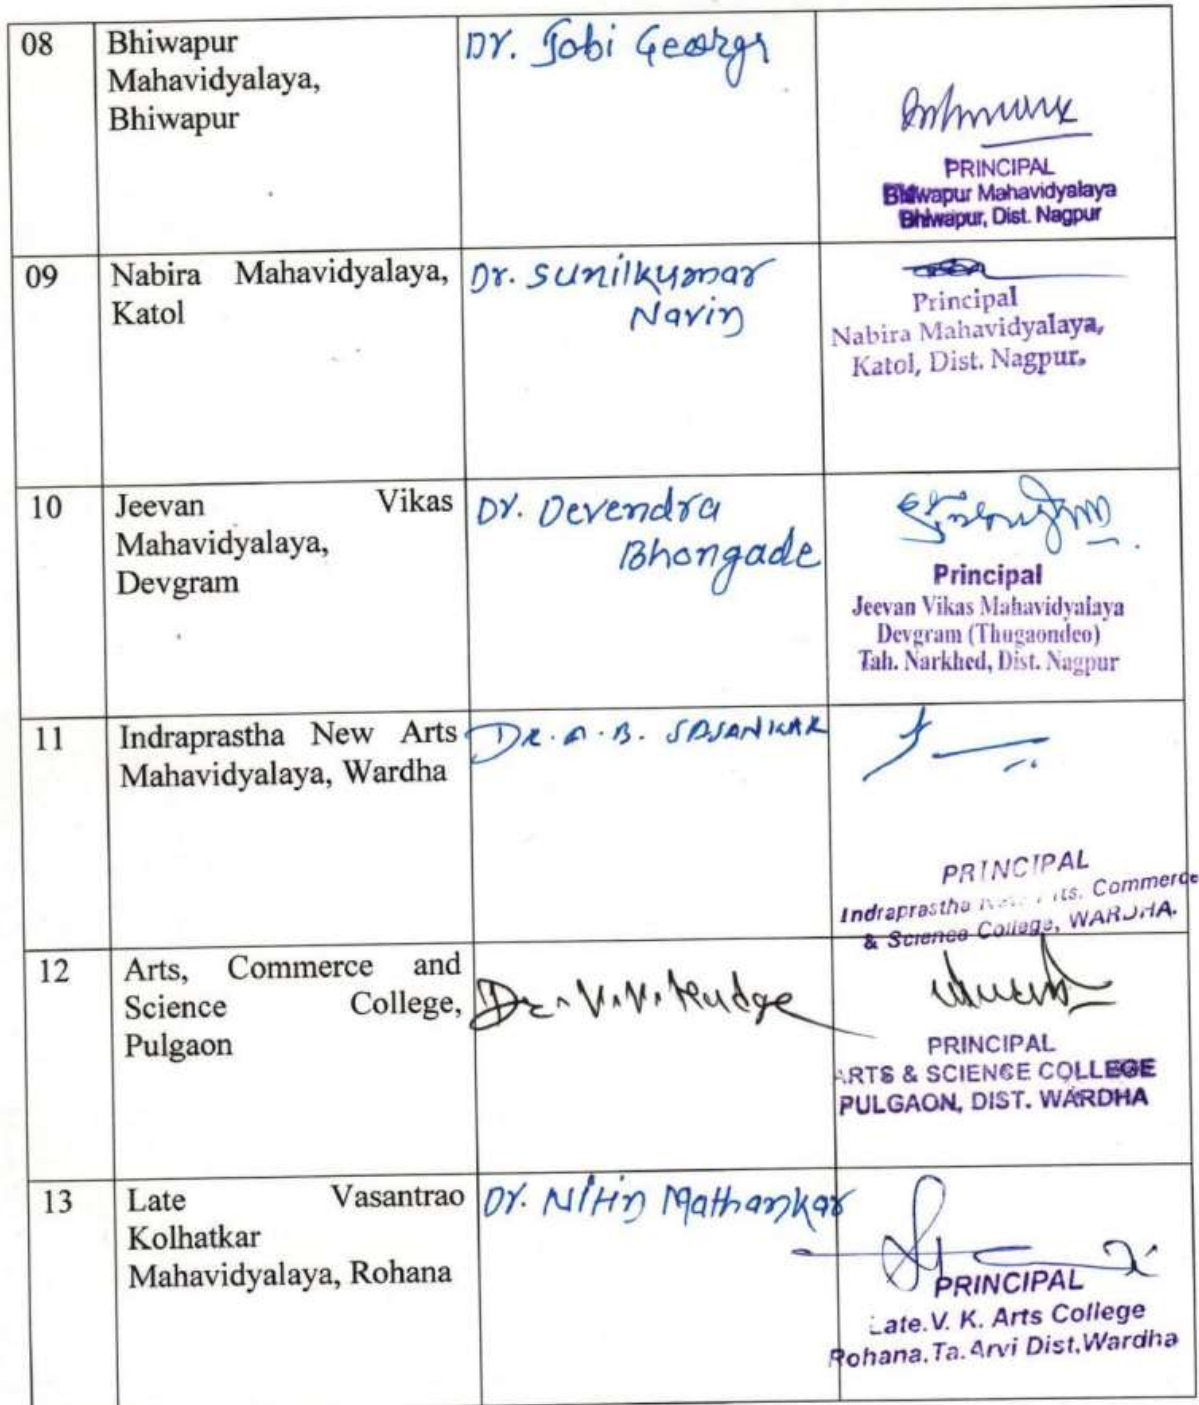 08
Bhiwapur
Mahavidyalaya,
Bhiwapur
Dr. Jobi George
PRINCIPAL
Bhiwapur Mahavidyalaya
Bhiwapur, Dist. Nagpur
09
Nabira Mahavidyalaya,
Katol
Dr. Sunilkumar
Navin
Principal
Nabira Mahavidyalaya,
Katol, Dist. Nagpur.
10
Jeevan Vikas
Mahavidyalaya,
Devgram
Dr. Devendra
Bhongade
Principal
Jeevan Vikas Mahavidyalaya
Devgram (Thugaondeo)
Tah. Narkhed, Dist. Nagpur
11
Indraprastha New Arts
Mahavidyalaya, Wardha
DR. A. B. SASANKAR
PRINCIPAL
Indraprastha Commerce
& Science College, WARDHA.
12
Arts, Commerce and
Science College,
Pulgaon
Dr. V.V.
PRINCIPAL
ARTS & SCIENCE COLLEGE
PULGAON, DIST. WARDHA
13
Late Vasantrao
Kolhatkar
Mahavidyalaya, Rohana
Dr. Nitin Mathankar
PRINCIPAL
Late.V. K. Arts College
Rohana.Ta.Arvi Dist.Wardha